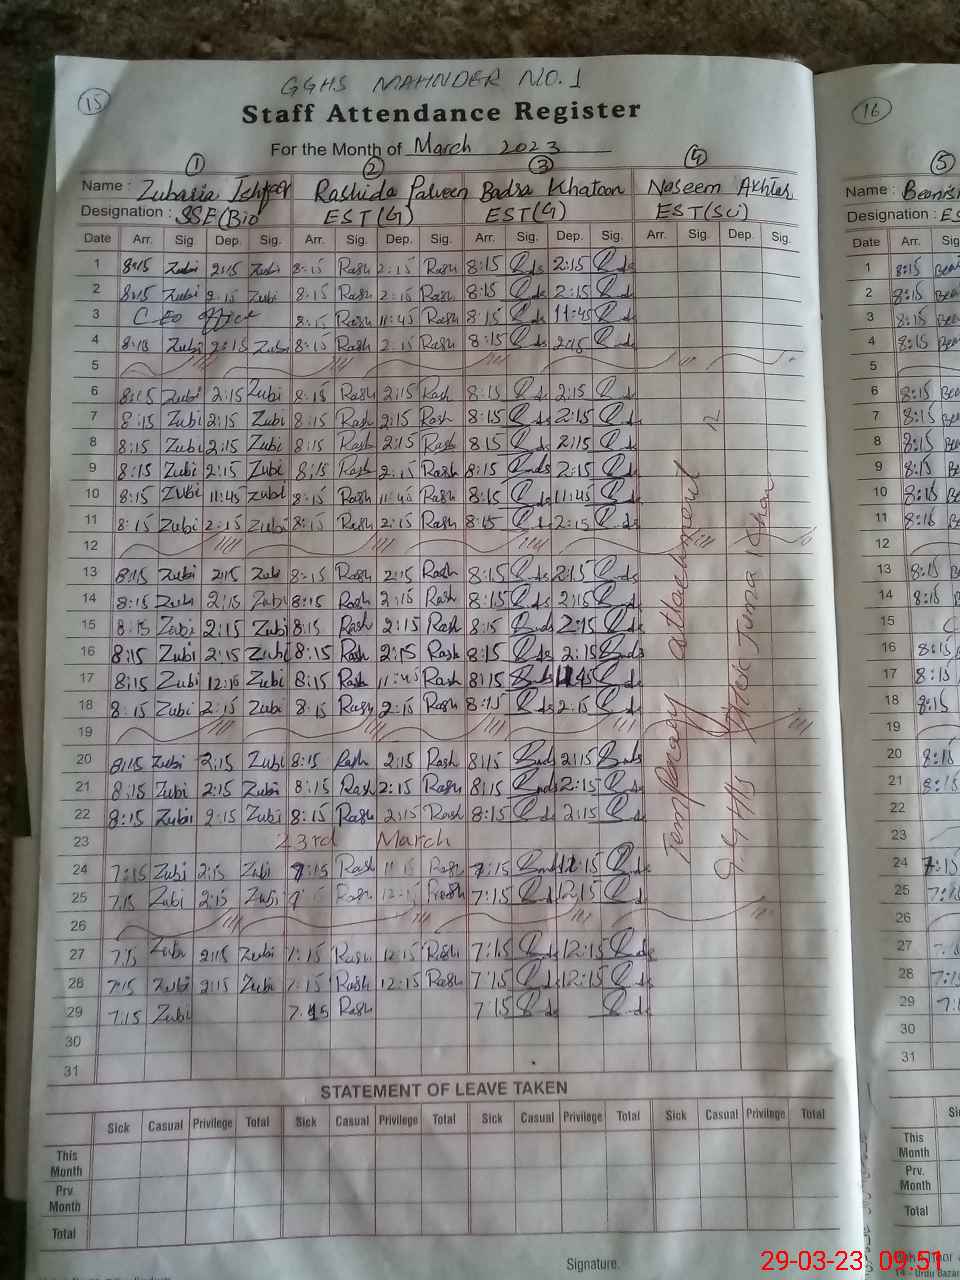 GGHS MAHNDER NO.1
15
Staff Attendance Register
16
For the Month of March 2023
1 2 3 4 5
Name : Zubaria Rashida Parveen Badra Khatoon Naseem Akhtar Name :
Designation : SSE(Bio) EST(G) EST(G) EST(Sci) Designation :
Date Arr. Sig. Dep. Sig. Arr. Sig. Dep. Sig. Arr. Sig. Dep. Sig. Arr. Sig. Dep. Sig. Date Arr.
1 8:15 Zubi 2:15 Zubi 8:15 Rash 2:15 Rash 8:15 2:15 1 8:15
2 8:15 Zubi 2:15 Zubi 8:15 Rash 2:15 Rash 8:15 2:15 2 8:15
3 CEO Office 8:15 Rash 11:45 Rash 8:15 11:45 3 8:15
4 Zubi 2:15 Zubi 8:15 Rash 2:15 Rash 8:15 4 8:15
5 5
6 8:15 Zubi 2:15 Zubi 8:15 Rash 2:15 Rash 8:15 2:15 6 8:15
7 8:15 Zubi 2:15 Zubi 8:15 Rash 2:15 Rash 8:15 2:15 7 8:15
8 8:15 Zubi 2:15 Zubi 8:15 Rash 2:15 Rash 8 15 2:15 8 8:15
9 8:15 Zubi 2:15 Zubi 8:15 Rash 2:15 Rash 8:15 2:15 9 8:15
10 8:15 Zubi 11:45 Zubi 8:15 Rash 11:45 Rash 8:15 11:45 10 8:15
11 8:15 Zubi 2:15 Zubi 8:15 Rash 2:15 Rash 8:15 2:15 11
12 12
13 8:15 Zubi 2:15 Zubi 8:15 Rash 2:15 Rash 8:15 2:15 13 8:15
14 8:15 Zubi 2:15 Zubi 8:15 Rash 2:15 Rash 8:15 2:15 14 8:15
15 8:15 Zubi 2:15 Zubi 8:15 Rash 2:15 Rash 8:15 2:15 15
16 8:15 Zubi 2:15 Zubi 8:15 Rash 2:15 Rash 8:15 2:15 16 8:15
17 8:15 Zubi 12:15 Zubi 8:15 Rash 11:45 Rash 8:15 11:45 17 8:15
18 8:15 Zubi 2:15 Zubi 8:15 Rash 2:15 Rash 8:15 2:15 18 8:15
19 19
20 8:15 Zubi 2:15 Zubi 8:15 Rash 2:15 Rash 8:15 2:15 20 8:15
21 8:15 Zubi 2:15 Zubi 8:15 Rash 2:15 Rash 8:15 2:15 21 8:15
22 8:15 Zubi 2:15 Zubi 8:15 Rash 2:15 Rash 8:15 2:15 22
23 23rd March 23
24 7:15 Zubi 2:15 Zubi 7:15 Rash Rash 7:15 12:15 24 7:15
25 7:15 Zubi 2:15 Zubi Rash 12:15 7:15 12:15 25
26 26
27 7:15 Zubi 2:15 Zubi 7:15 Rash 12:15 Rash 7:15 12:15 27
28 7:15 Zubi 2:15 Zubi 7:15 Rash 12:15 Rash 7:15 12:15 28 7:15
29 7:15 Zubi Rash 7:15 29
30 30
31 31
Temporary attachment
G.GHS Juma Khan
STATEMENT OF LEAVE TAKEN
Sick Casual Privilege Total Sick Casual Privilege Total Sick Casual Privilege Total Sick Casual Privilege Total
This Month This Month
Prv. Month Prv. Month
Total Total
Signature.
29-03-23 09:51